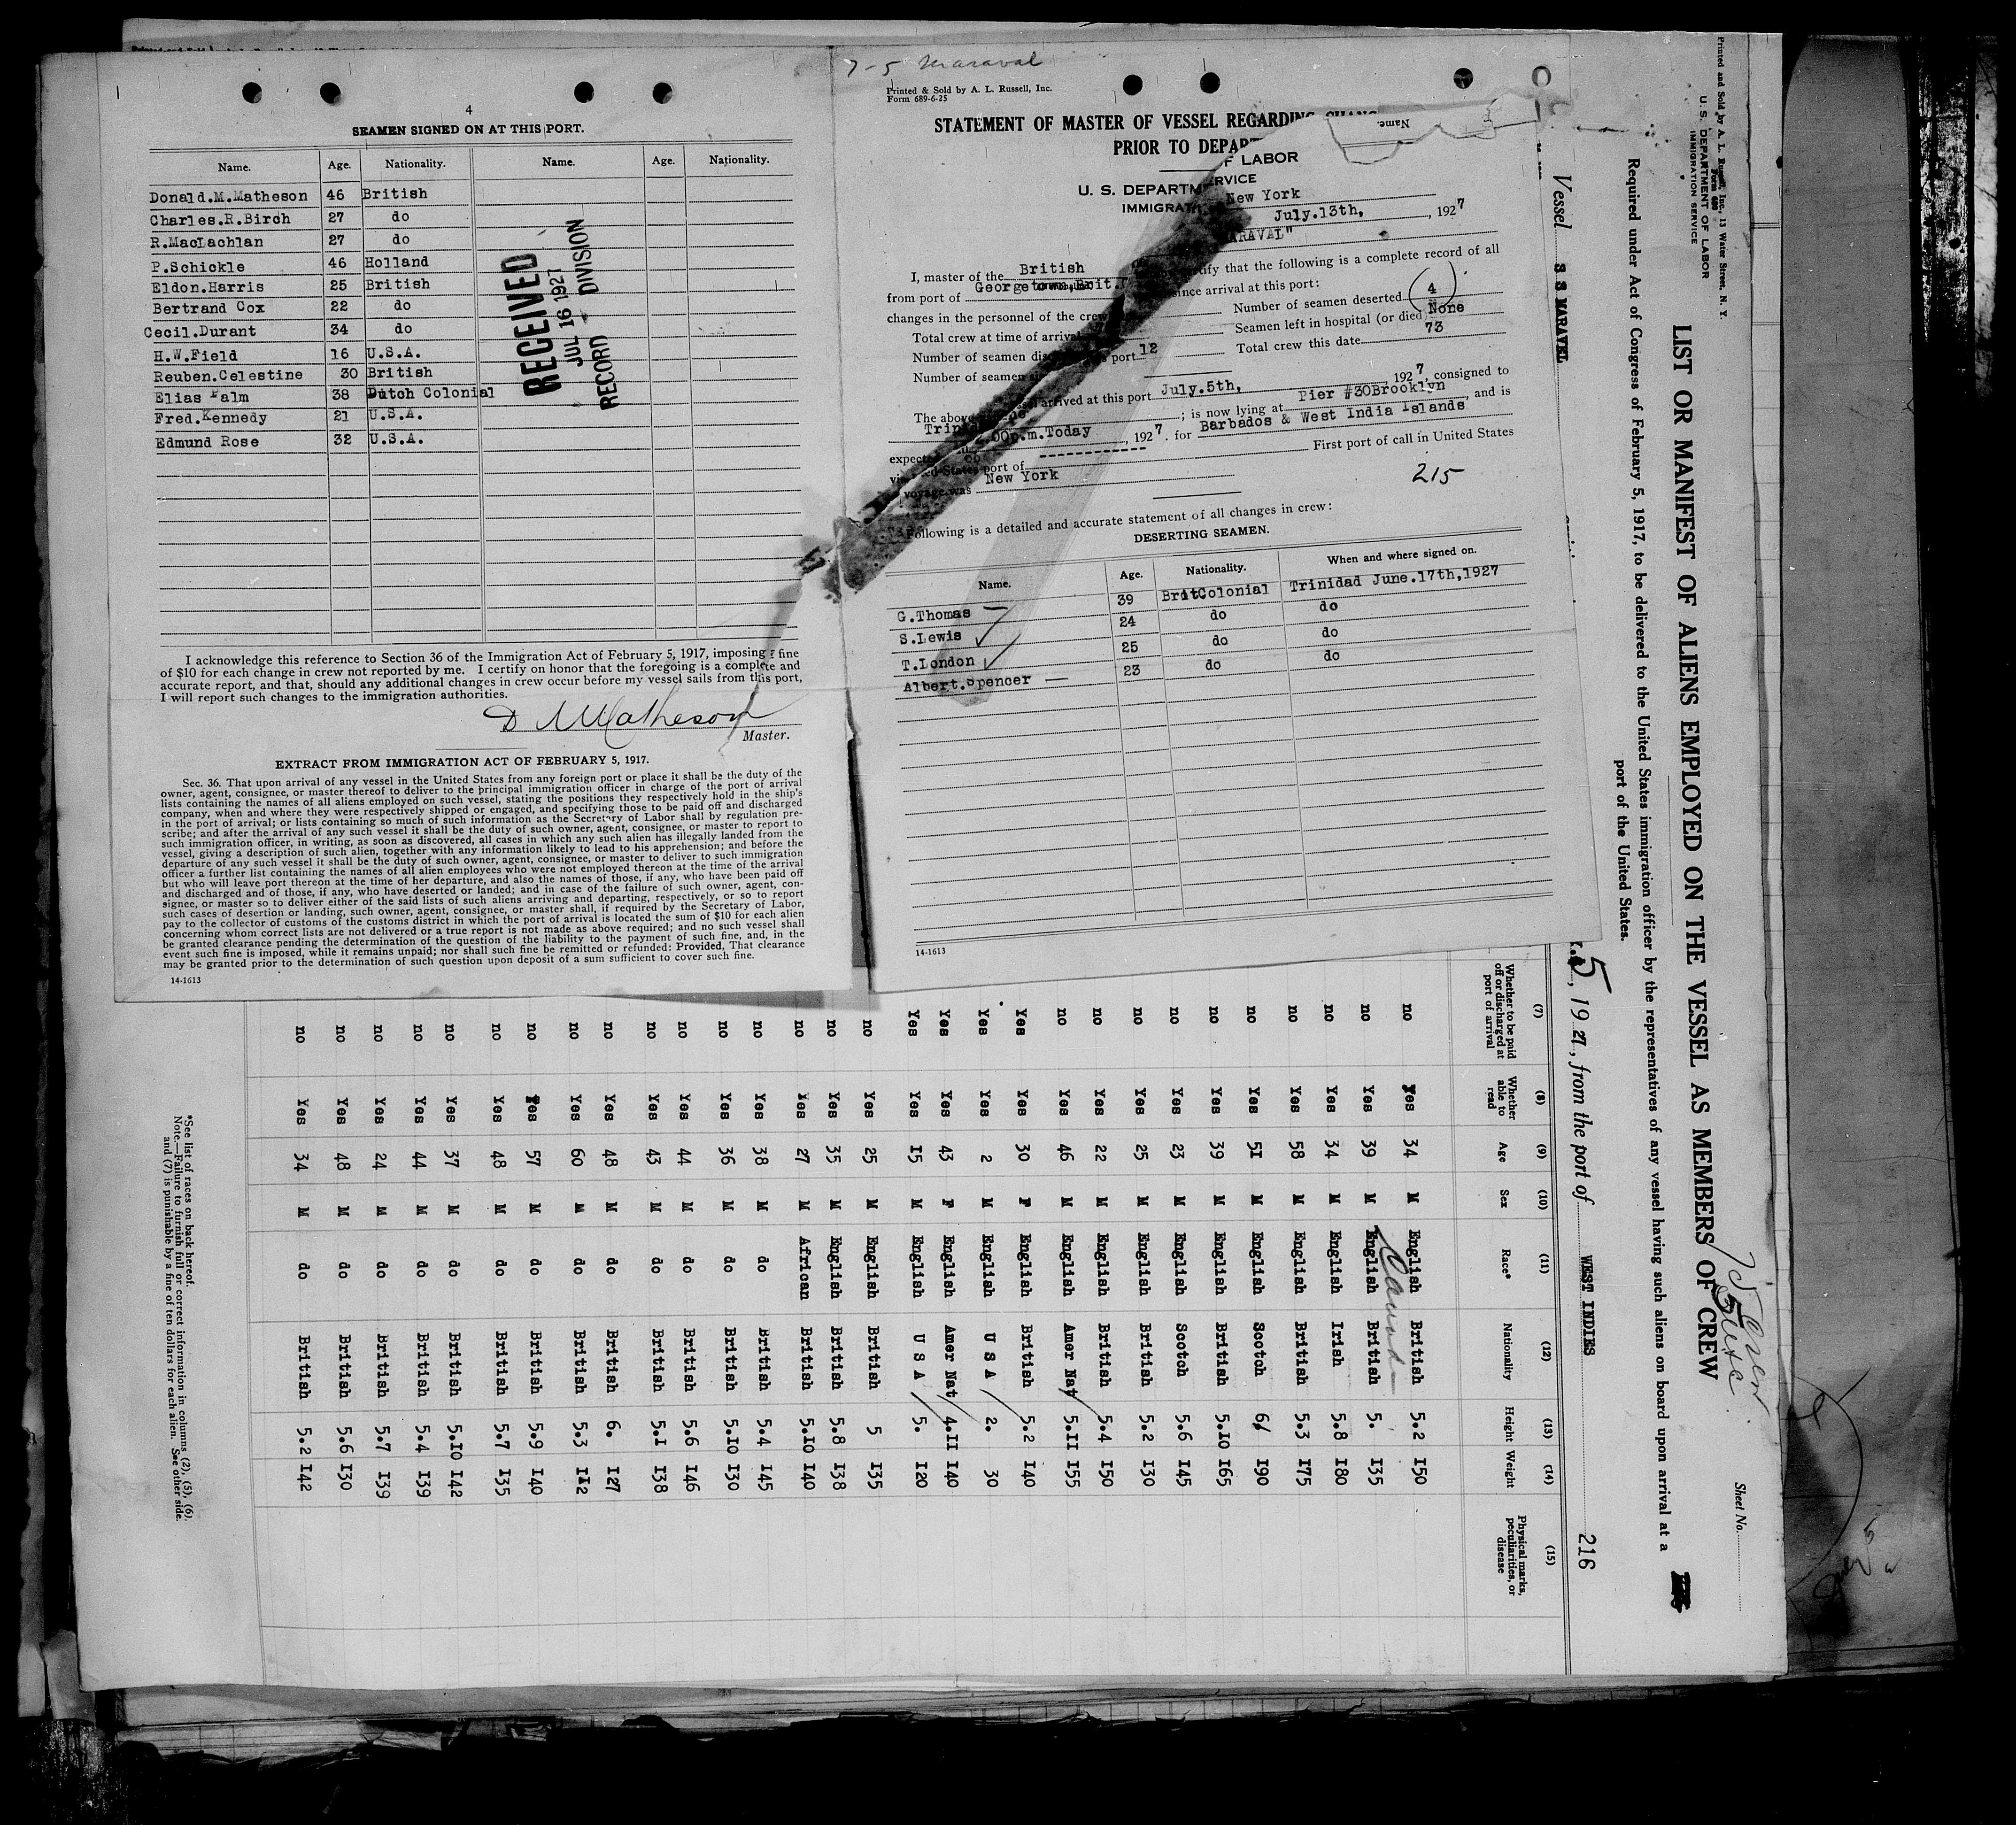 4
SEAMEN SIGNED ON AT THIS PORT.
Name. Age. Nationality. Name. Age. Nationality.
Donald.M.Matheson 46 British
Charles.R.Birch 27 do
R.MacLachlan 27 do
P.Schickle 46 Holland
Eldon.Harris 25 British
Bertrand Cox 22 do
Cecil.Durant 34 do
H.W.Field 16 U.S.A.
Reuben.Celestine 30 British
Elias Palm 38 Dutch Colonial
Fred.Kennedy 21 U.S.A.
Edmund Rose 32 U.S.A.
RECEIVED
JUL 16 1927
RECORD DIVISION
I acknowledge this reference to Section 36 of the Immigration Act of February 5, 1917, imposing a fine
of $10 for each change in crew not reported by me. I certify on honor that the foregoing is a complete and
accurate report, and that, should any additional changes in crew occur before my vessel sails from this port,
I will report such changes to the immigration authorities.
D M Matheson
Master.
EXTRACT FROM IMMIGRATION ACT OF FEBRUARY 5, 1917.
Sec. 36. That upon arrival of any vessel in the United States from any foreign port or place it shall be the duty of the
owner, agent, consignee, or master thereof to deliver to the principal immigration officer in charge of the port of arrival
lists containing the names of all aliens employed on such vessel, stating the positions they respectively hold in the ship's
company, when and where they were respectively shipped or engaged, and specifying those to be paid off and discharged
in the port of arrival; or lists containing so much of such information as the Secretary of Labor shall by regulation pre-
scribe; and after the arrival of any such vessel it shall be the duty of such owner, agent, consignee, or master to report to
such immigration officer, in writing, as soon as discovered, all cases in which any such alien has illegally landed from the
vessel, giving a description of such alien, together with any information likely to lead to his apprehension; and before the
departure of any such vessel it shall be the duty of such owner, agent, consignee, or master to deliver to such immigration
officer a further list containing the names of all alien employees who were not employed thereon at the time of the arrival
but who will leave port thereon at the time of her departure, and also the names of those, if any, who have been paid off
and discharged and of those, if any, who have deserted or landed; and in case of the failure of such owner, agent, con-
signee, or master so to deliver either of the said lists of such aliens arriving and departing, respectively, or so to report
such cases of desertion or landing, such owner, agent, consignee, or master shall, if required by the Secretary of Labor,
pay to the collector of customs of the customs district in which the port of arrival is located the sum of $10 for each alien
concerning whom correct lists are not delivered or a true report is not made as above required; and no such vessel shall
be granted clearance pending the determination of the question of the liability to the payment of such fine, and, in the
event such fine is imposed, while it remains unpaid; nor shall such fine be remitted or refunded: Provided, That clearance
may be granted prior to the determination of such question upon deposit of a sum sufficient to cover such fine.
14-1613
7-5 Maraval
Printed & Sold by A. L. Russell, Inc.
Form 689-6-25
STATEMENT OF MASTER OF VESSEL REGARDING
PRIOR TO
Name.
F LABOR
U. S. DEPARTM
RVICE
IMMIGRAT
New York
July.13th, 1927
ARAVAL"
I, master of the British
tify that the following is a complete record of all
from port of Georgetown,Brit.
since arrival at this port:
changes in the personnel of the crew
Number of seamen deserted 4
Total crew at time of arrival
Seamen left in hospital (or died) None
Number of seamen dis
port 12
Total crew this date 73
Number of seamen
The above
arrived at this port July.5th, 1927, consigned to
Trin
; is now lying at Pier #30Brooklyn, and is
expected
.00p.m.Today, 1927. for Barbados & West India Islands
ed States port of
First port of call in United States
voyage was New York
215
Following is a detailed and accurate statement of all changes in crew:
DESERTING SEAMEN.
Name. Age. Nationality. When and where signed on.
G.Thomas 39 BritColonial Trinidad June.17th,1927
S.Lewis 24 do do
T.London 25 do do
Albert.Spencer 23 do do
14-1613
Sheet No.
Printed and Sold by A. L. Russell, Inc., 13 Water Street, N. Y.
Form 680
U. S. DEPARTMENT OF LABOR
IMMIGRATION SERVICE
LIST OR MANIFEST OF ALIENS EMPLOYED ON THE VESSEL AS MEMBERS OF CREW
Required under Act of Congress of February 5, 1917, to be delivered to the United States immigration officer by the representatives of any vessel having such aliens on board upon arrival at a
port of the United States.
Vessel S S MARAVEL
5, 1927, from the port of WEST INDIES 216
(7) (8) (9) (10) (11) (12) (13) (14) (15)
Whether to be paid off or discharged at port of arrival
Whether able to read
Age Sex Race* Nationality Height Weight
Physical marks, peculiarities, or disease
no Yes 34 M English British 5.2 150
no Yes 39 M English British 5. 135
no Yes 34 M English Irish 5.8 180
no Yes 58 M English British 5.3 175
no Yes 51 M English Scotch 6 190
no Yes 39 M English British 5.10 165
no Yes 23 M English Scotch 5.6 145
no Yes 25 M English British 5.2 130
no Yes 22 M English British 5.4 150
no Yes 46 M English Amer Nat 5.11 155
Yes Yes 30 F English British 5.2 140
Yes Yes 2 M English U S A 2. 30
Yes Yes 43 F English Amer Nat 4.11 140
Yes Yes 15 M English U S A 5. 120
no Yes 25 M English British 5 135
no Yes 35 M English British 5.8 138
no Yes 27 M African British 5.10 140
no Yes 38 M do British 5.4 145
no Yes 36 M do British 5.10 130
no Yes 44 M do British 5.6 146
no Yes 43 M do British 5.1 138
no Yes 48 M do British 6. 127
no Yes 60 M do British 5.3 112
no Yes 57 M do British 5.9 140
no Yes 48 M do British 5.7 135
no Yes 37 M do British 5.10 142
no Yes 44 M do British 5.4 139
no Yes 24 M do British 5.7 139
no Yes 48 M do British 5.6 130
no Yes 34 M do British 5.2 142
*See list of races on back hereof.
Note.—Failure to furnish full or correct information in columns (2), (5), (6),
and (7) is punishable by a fine of ten dollars for each alien. See other side.